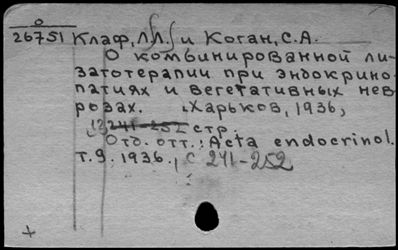 О
26751 Клаф, Л.Л. и Коган, С.А.
О комбинированной ли-
затотерапии при эндокрино-
патиях и вегетативных нев-
розах. Харьков, 1936,
12 241-252 стр.
Отд. отт.: Acta endocrinol.
т.9. 1936., с 241-252
+